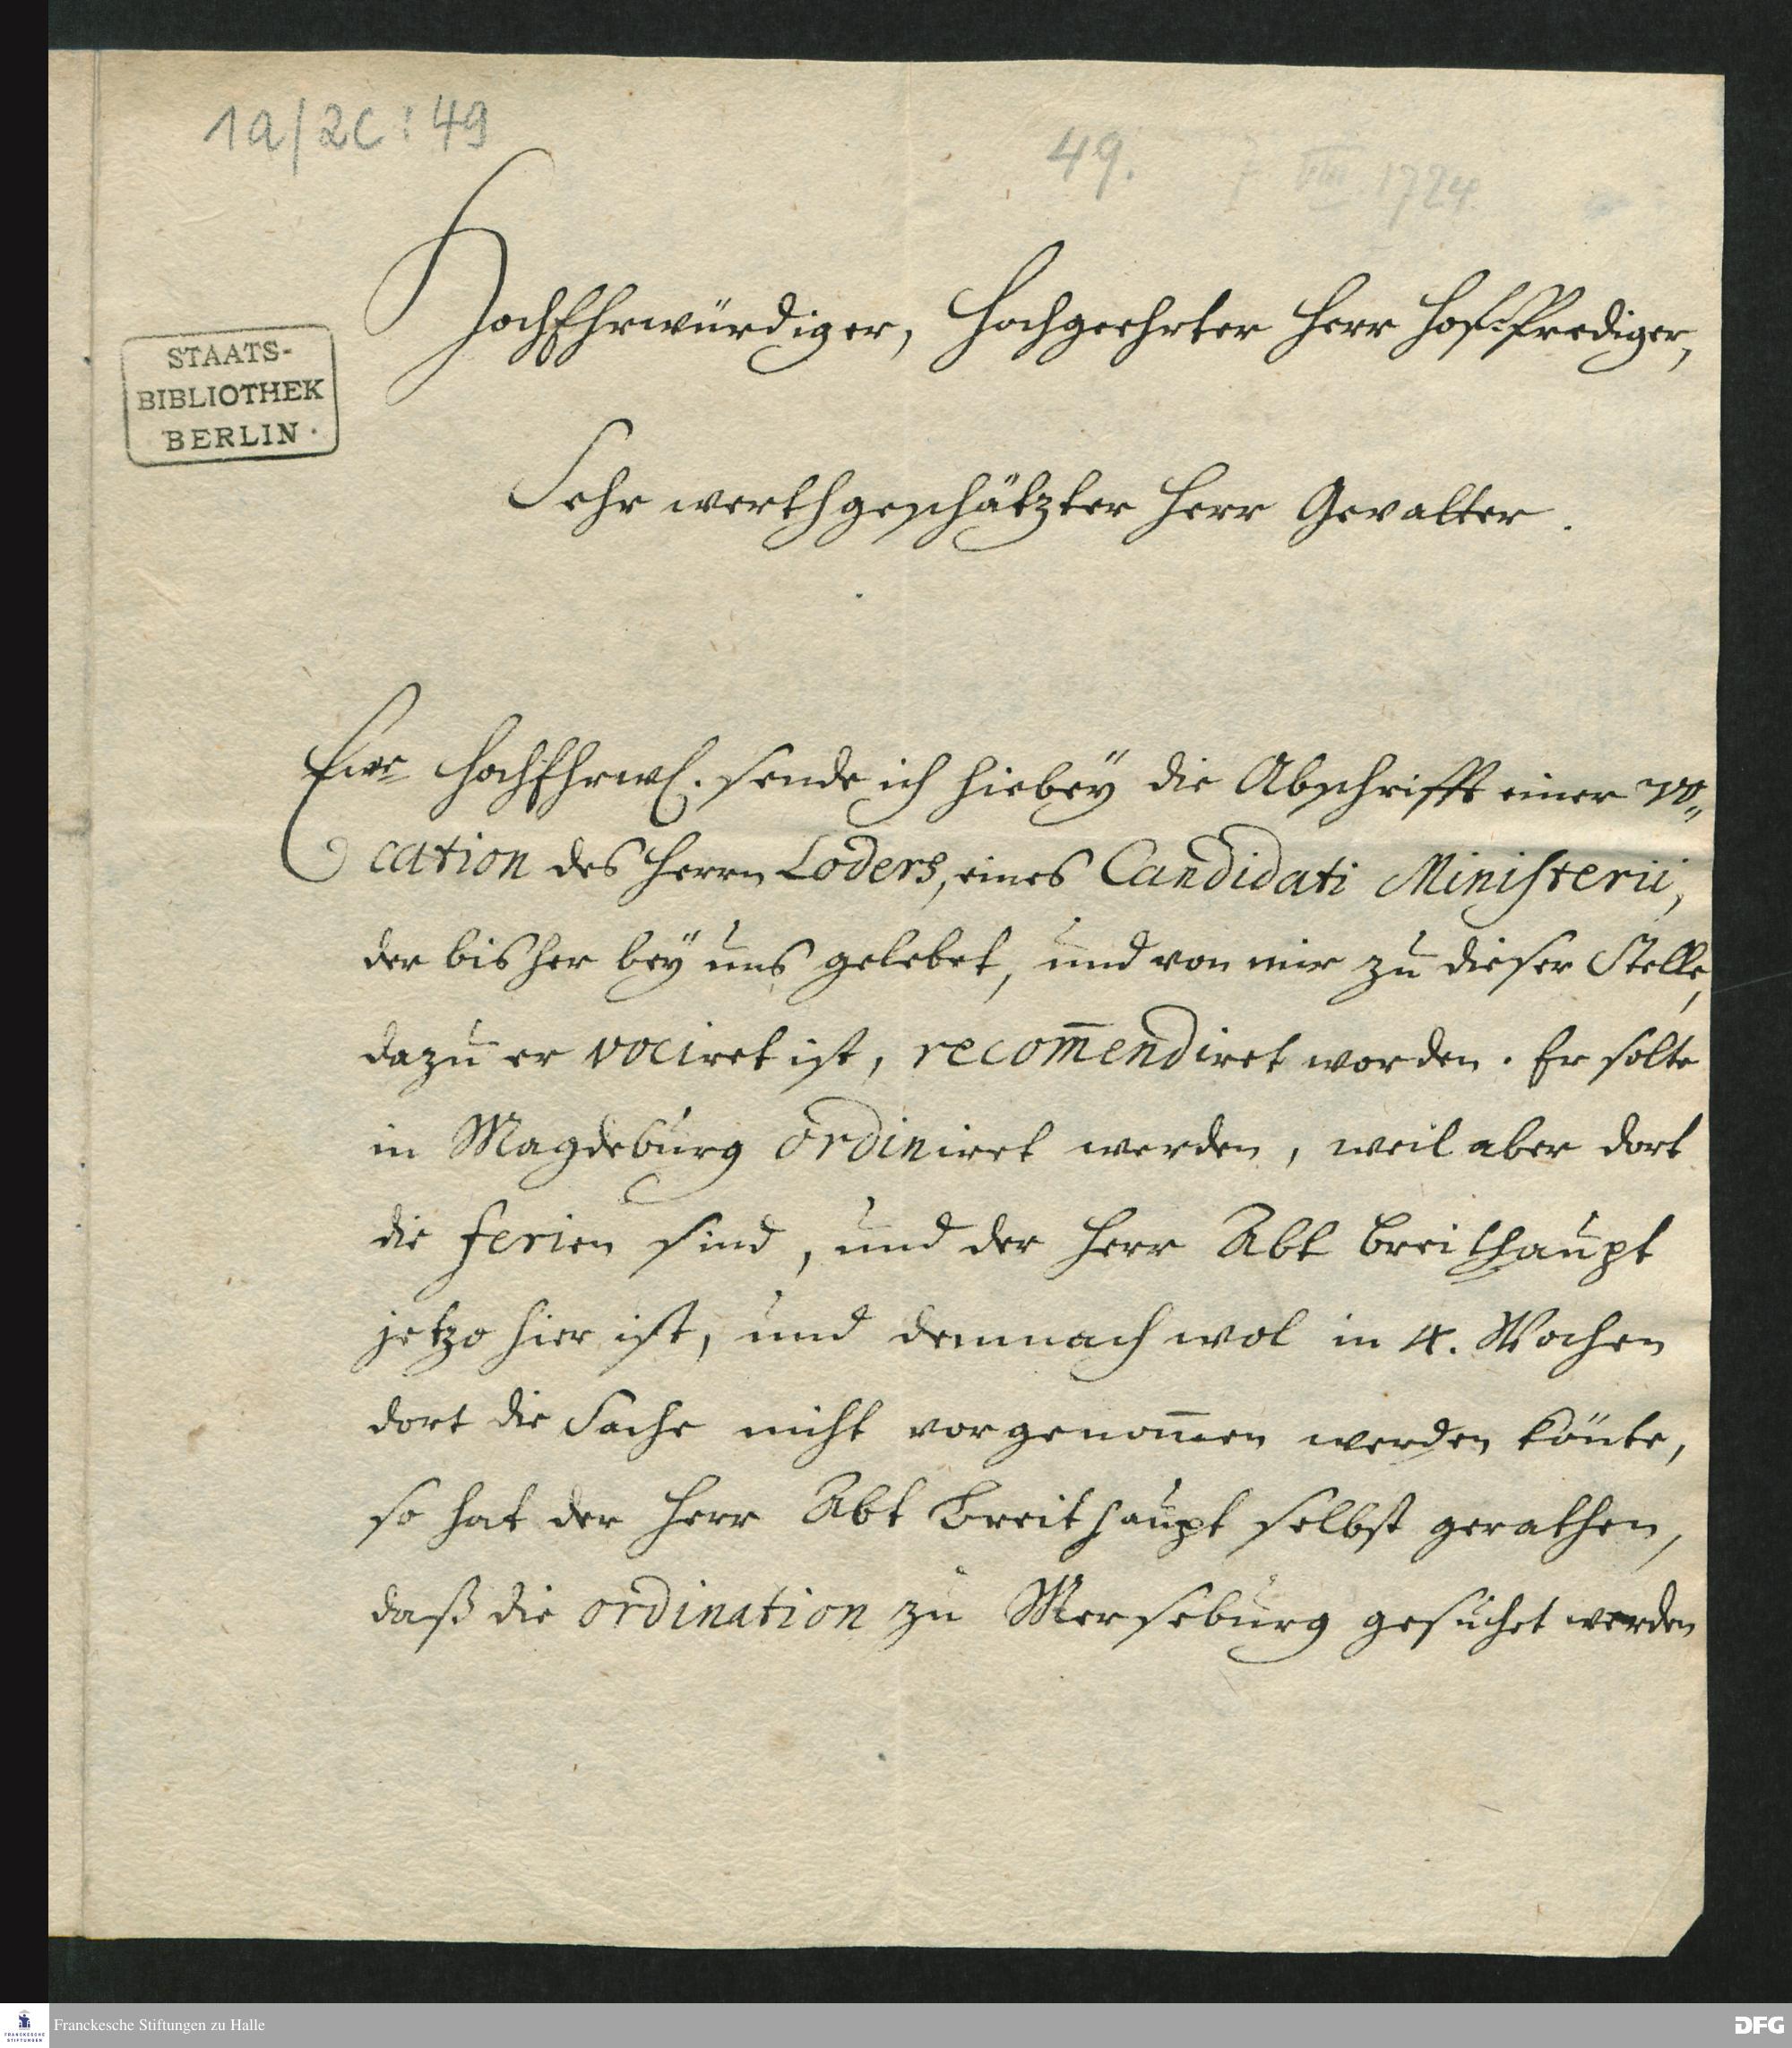 1a/2c:49
49. 7 VIII 1724
STAATS-
BIBLIOTHEK
BERLIN.
HochEhrwürdiger, Hochgeehrter Herr Hof-Prediger,
Sehr werthgeschätzter Herr Gevatter.
Ewr HochEhrw. sende ich hiebey die Abschrifft einer vo-
cation des Herrn Loders, eines Candidati Ministerii,
der bisher bey uns gelebet, und von mir zu dieser Stelle,
dazu er vociret ist, recom̅endiret worden. Er solte
in Magdeburg ordiniret werden, weil aber dort
die ferien sind, und der Herr Abt Breithaupt
jetzo hier ist, und demnach wol in 4. Wochen
dort die Sache nicht vorgenom̅en werden könte,
so hat der Herr Abt Breithaupt selbst gerathen,
daß die ordination zu Merseburg gesuchet werden
FRANCKESCHE
STIFTUNGEN
Franckesche Stiftungen zu Halle
DFG